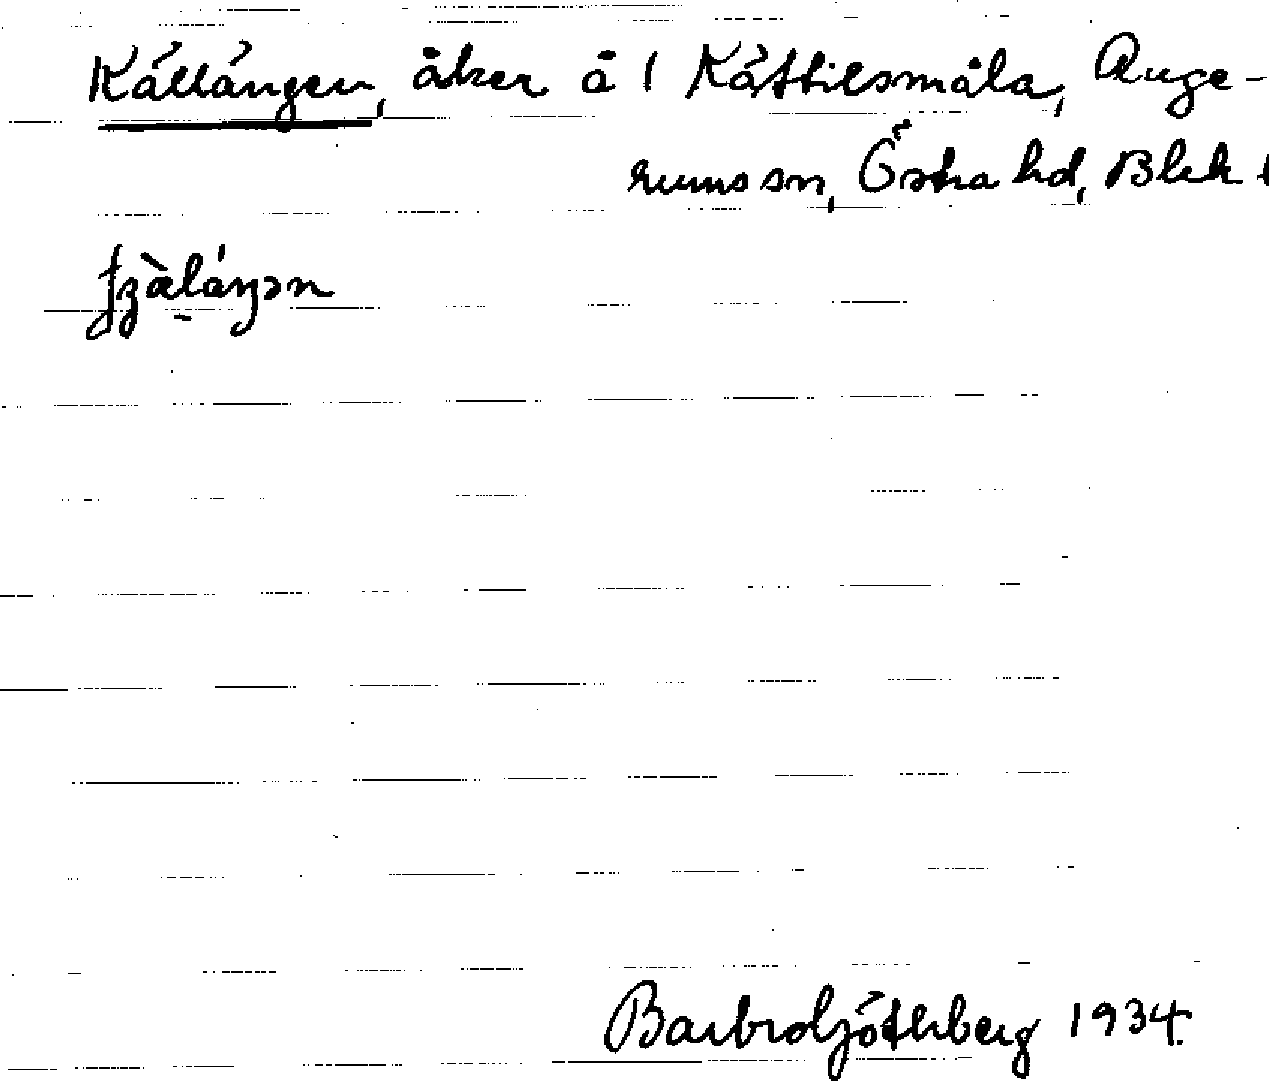 Källängen, åker å 1 Kättilsmåla, Auge-
rums sn, Östra hd, Blek
Barbro Götherberg 1934.